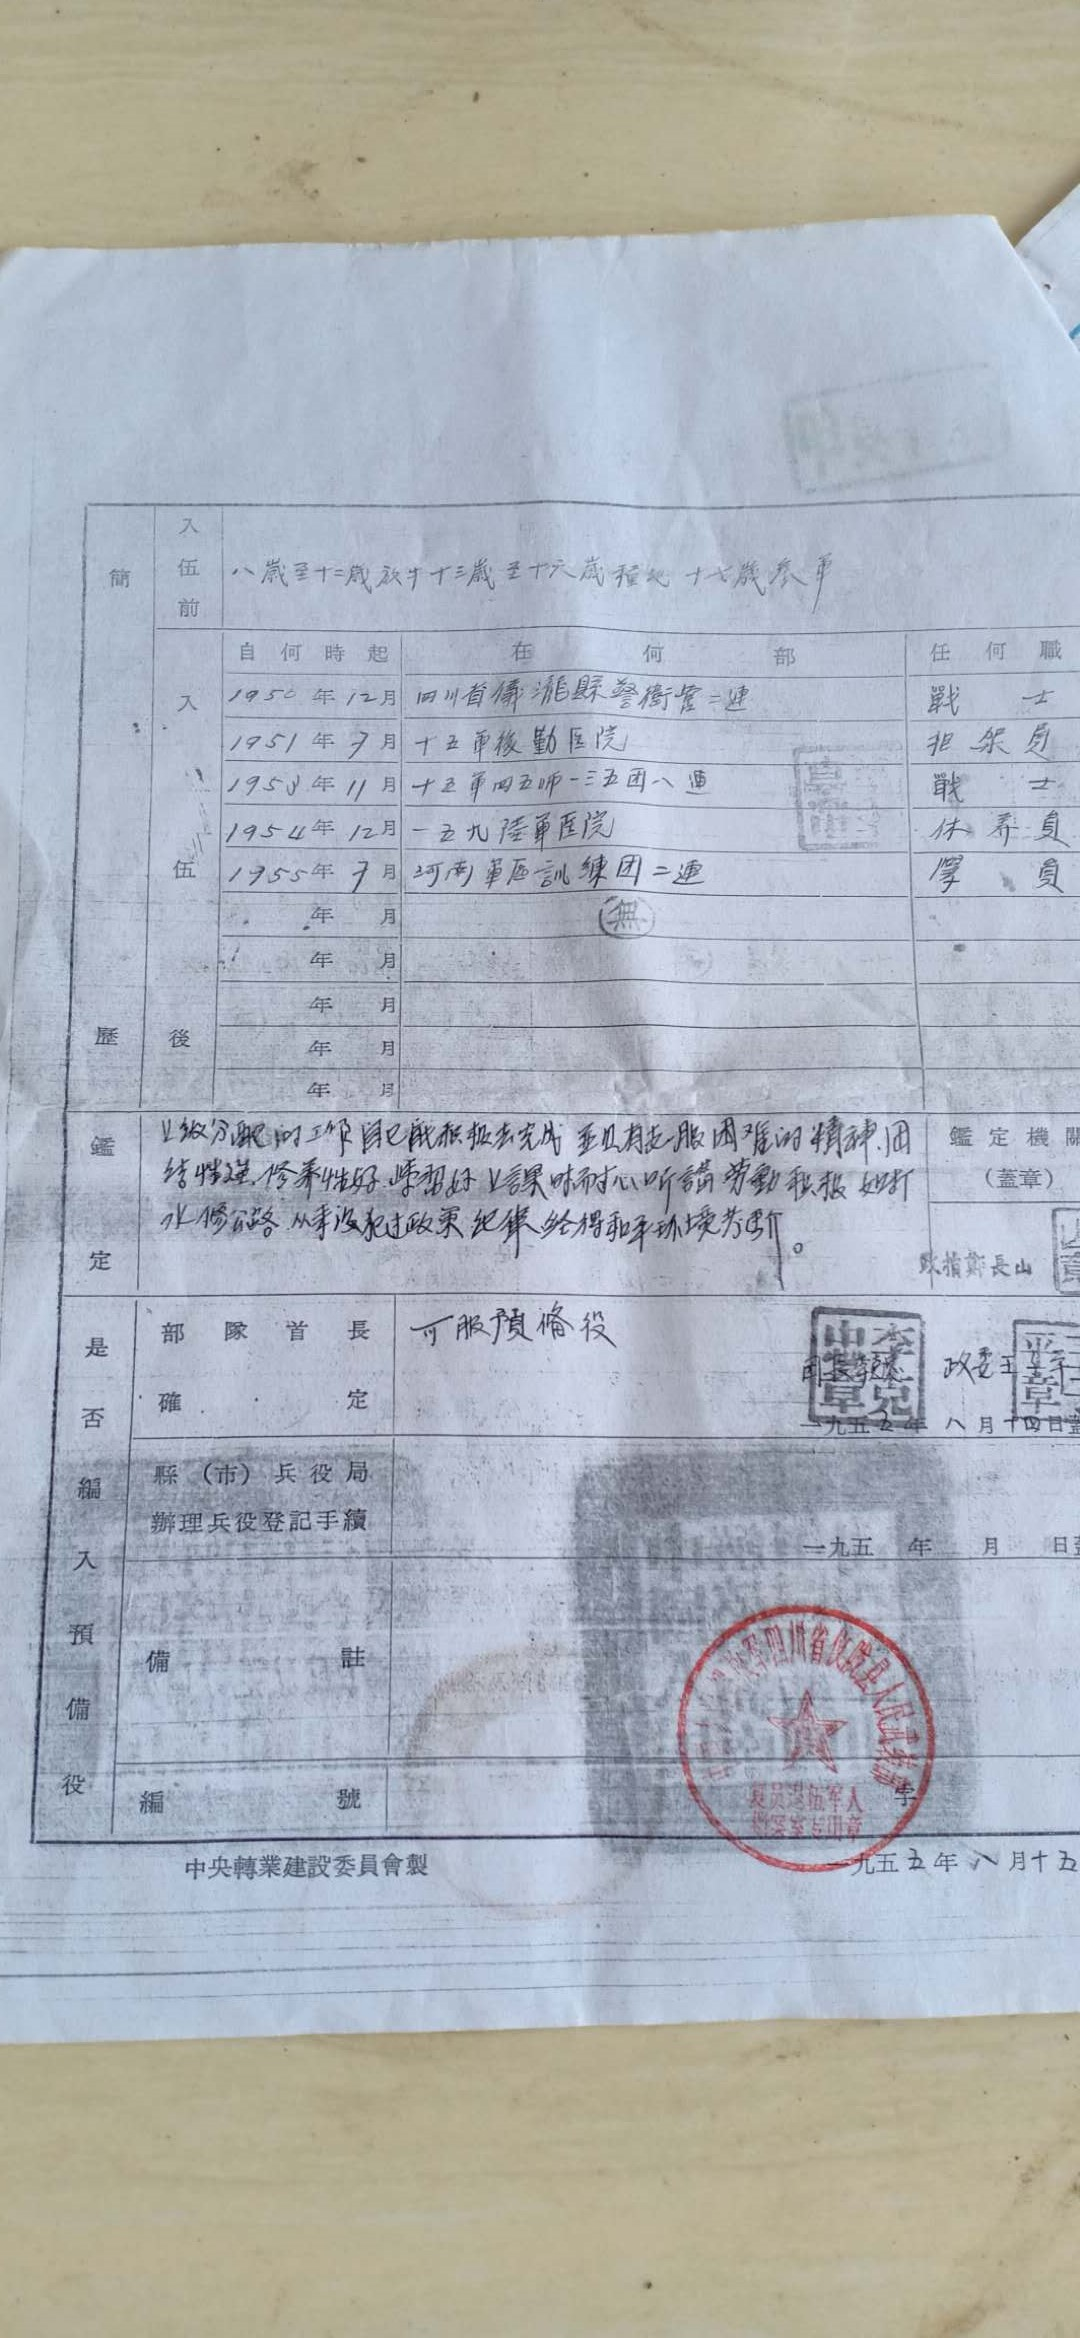 簡歷
入伍前
八歲至十二歲放牛十三歲至十六歲種地 十七歲參軍
入伍後
自何時起 在何部 任何職
1950年12月 四川省儀隴縣警衛營二連 戰士
1951年7月 十五軍後勤医院 担架員
1953年11月 十五軍四五师一三五团八連 戰士
1954年12月 一五九陸軍医院 休养員
1955年7月 河南軍区訓練团二連 學員
年 月 無
年 月
年 月
年 月
年 月
鑑定
上級分配的工作自己能积极去完成 並且有克服困难的精神.团
结性強.修养性好.學習好 上課時耐心听講 劳動积极 如打
水修公路 从来没犯过政策 纪律 经得和平环境考验。
鑑定機關
(蓋章)
政指鄭長山
是否編入預備役
部隊首長
確定
可服預備役
团長李克忠 政委王
一九五五年 八月十四日蓋
縣(市)兵役局
辦理兵役登記手續
一九五 年 月 日蓋
備註
四川省仪陇县人民武装部
复员退伍军人
档案室专用章
編號 字
中央轉業建設委員會製
一九五五年八月十五